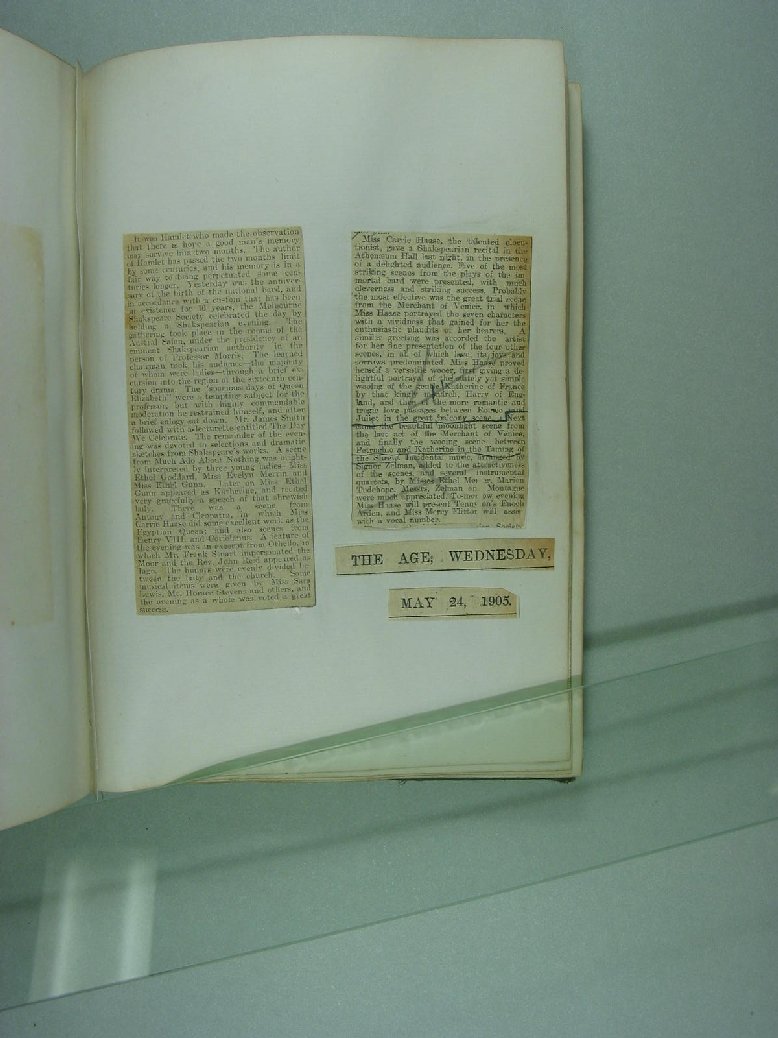 It was Hamlet who made the observation
that there is hope a good man's memory
may survive him two months. The author
of Hamlet has passed the two months limit
by some centuries, and his memory is in a
fair way to being perpetuated some cen-
turies longer. Yesterday was the anniver-
sary of the birth of the national bard, and
in accordance with a custom that has been
in existence for 16 years, the Melbourne
Shakspeare Society celebrated the day by
holding a Shakspearian evening. The
gathering took place in the rooms of the
Austral Salon, under the presidency of an
eminent Shakspearian authority in the
person of Professor Morris. The learned
chairman took his audience—the majority
of whom were ladies—through a brief ex-
cursion into the region of the sixteenth cen-
tury drama. The "spacious days of Queen
Elizabeth" were a tempting subject for the
professor, but with highly commendable
moderation he restrained himself, and after
a brief eulogy sat down. Mr. James Smith
followed with a lecturette entitled The Day
We Celebrate. The remainder of the even-
ing was devoted to selections and dramatic
sketches from Shakspeare's works. A scene
from Much Ado About Nothing was
by three young ladies—Miss
Ethel Goddard, Miss Evelyn Merrin and
Miss Ethel Gunn. Later on Miss Ethel
Gunn appeared as Katherine, and recited
very gracefully a speech of that shrewish
lady. There was a scene from
Antony and Cleopatra, in which Miss
Carrie Haase did some excellent work as the
Egyptian Queen; and also scenes from
Henry VIII. and Coriolanus. A feature of
the evening was an excerpt from Othello, in
which Mr. Frank Stuart impersonated the
Moor and the Rev. John Reid appeared as
Iago. The honors were evenly divided be-
tween the laity and the church. Some
musical items were given by Miss Sara
Lewis, Mr. Horace Stevens and others, and
the evening as a whole was voted a great
success.
Miss Carrie Haase, the talented elocu-
tionist, gave a Shakspearian recital in the
Athenæum Hall last night, in the presence
of a delighted audience. Five of the most
striking scenes from the plays of the im-
mortal bard were presented, with much
cleverness and striking success. Probably
the most effective was the great trial scene
from the Merchant of Venice, in which
Miss Haase portrayed the seven characters
with a vividness that gained for her the
enthusiastic plaudits of her hearers. A
similar greeting was accorded the artist
for her fine presentation of the four other
scenes, in all of which love, its joys and
sorrows predominated. Miss Haase proved
herself a versatile wooer, first giving a de-
lightful portrayal of the stately yet simple
wooing of the gentle Katherine of France
by that kingly monarch, Harry of Eng-
land, and then of the more romantic and
tragic love passages between Romeo and
Juliet in the great balcony scene. Next
came the beautiful moonlight scene from
the last act of the Merchant of Venice,
and finally the wooing scene between
Petruchio and Katherine in the Taming of
the Shrew. Incidental music, arranged by
Signor Zelman, added to the attractiveness
of the scenes, and several instrumental
quartets, by Misses Ethel Mooney, Marion
Tudehope, Messrs. Zelman and Montague
were much appreciated. To-morrow evening
Miss Haase will present Tennyson's Enoch
Arden, and Miss Mercy Mittor will assist
with a vocal number.
Society
THE AGE, WEDNESDAY,
MAY 24, 1905.